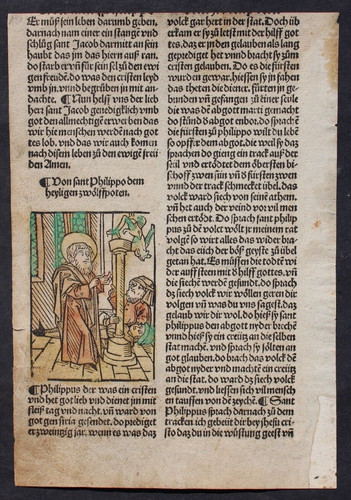 Er můß sein leben darumb geben.
darnach nam einer ein stange vnd
schlůg sant Jacob darmitt an sein
haubt das jm das hiern auß ran.
do starb er vñ für sein sel zů den ewi
gen freüdẽ. do was den cristen leyd
vmb jn. vnnd begrůben jn mit an-
dachte. ¶ Nun helff vns der lieb
herr sant Jacob genediglich vmb
got den allmechtigẽ erwerben das
wir hie menschen werdẽ nach got
tes lob. vnd das wir auch komen
nach disem leben zů den ewigẽ freü
den Amen.
¶ Von sant Philippo dem
heyligen zwölffpoten.
¶ Philippus der was ein cristen
vnd het got lieb vnd dienet jm mit
fleiß tag vnd nacht. vñ ward von
got gen siria gesendet. do prediget
er zweintzig jar. wenn es was daz
volck gar hert in der stat. Doch üb
erkam er sy zů letst mit der hilff got
tes. daz er jn den gelauben als lang
geprediget het vnd bracht sy zům
cristen gelauben. Do es die fürsten
wurden gewar. hiessen sy jn fahen
das theten die diener. fürten jn ge-
bunden vñ gefangen zů einer seüle
die was dẽ abgot marti gemacht
do stůnd ð abgot enbor. do sprachẽ
die fürsten zů philippo wilt du lebẽ
so opffer dem abgot. die weil sy daz
sprachen do gieng ein track auß der
seül vnd ertödtet dem obersten bi-
schoff zwen sün vñ ð fürsten zwen
vnnd der track schmecket übel. das
volck ward siech von seine athem.
vñ het auch der veind vor vil men
schen ertödt. Do sprach sant philip
pus zů dẽ volck wölt jr meinem rat
volgẽ so wirt alles das wider bra
cht das eüch der böß geyste zů übel
getan hat. Es müssen die todtẽ wi
der auff steen mit ð hilff gottes. vñ
die siechẽ werdẽ gesund. do sprach
daz siech volck wir wöllen geren dir
volgen vñ was du vns sagest. daz
gelaub wir dir wol. do hieß sy sant
philippus den abgot nyder brechẽ
vnnd hieß sy ein creütz an die selben
stat machẽ. vnd sprach sy sölten an
got glauben. do brach das volck dẽ
abgot nyder vnd machtẽ ein creütz
an die stat. do ward dz siech volck
gesundt. vnd liessen sich vil mensch
en tauffen von dẽ zeychẽ. ¶ Sant
Philippus sprach darnach zů dem
tracken ich gebeüt dir bey jhesu cri-
sto daz du in die wüstung geist vñ